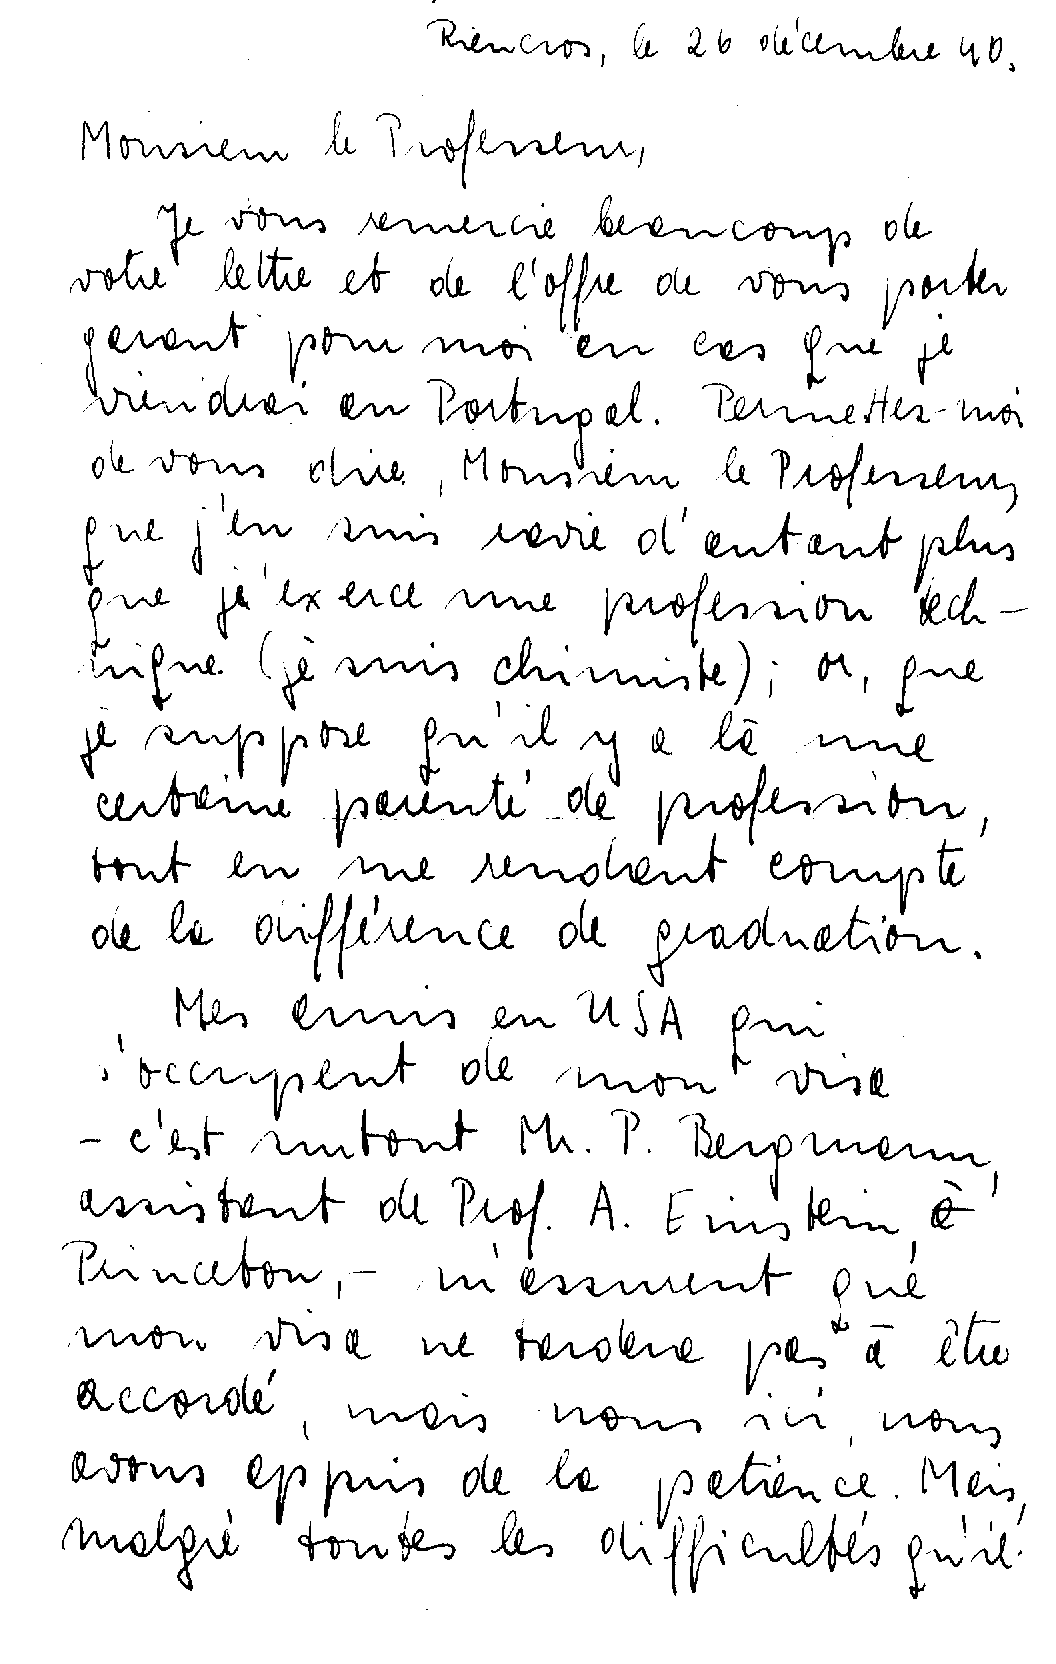 Riencros, le 26 décembre 40.
Monsieur le Professeur,
Je vous remercie beaucoup de
votre lettre et de l'offre de vous porter
garant pour moi en cas que je
viendrai en Portugal. Permettez-moi
de vous dire, Monsieur le Professeur,
que j'en suis ravie d'autant plus
que j'exerce une profession tech-
nique (je suis chimiste); or, que
je suppose qu'il y a là une
certaine parenté de profession,
tout en me rendant compte
de la différence de graduation.
Mes amis en USA qui
s'occupent de mon visa
- c'est surtout Mr. P. Bergmann,
assistant de Prof. A. Einstein, à
Princeton, - m'assurent que
mon visa ne tardera pas à être
accordé, mais nous ici, nous
avons appris de la patience. Mais,
malgré toutes les difficultés qu'il